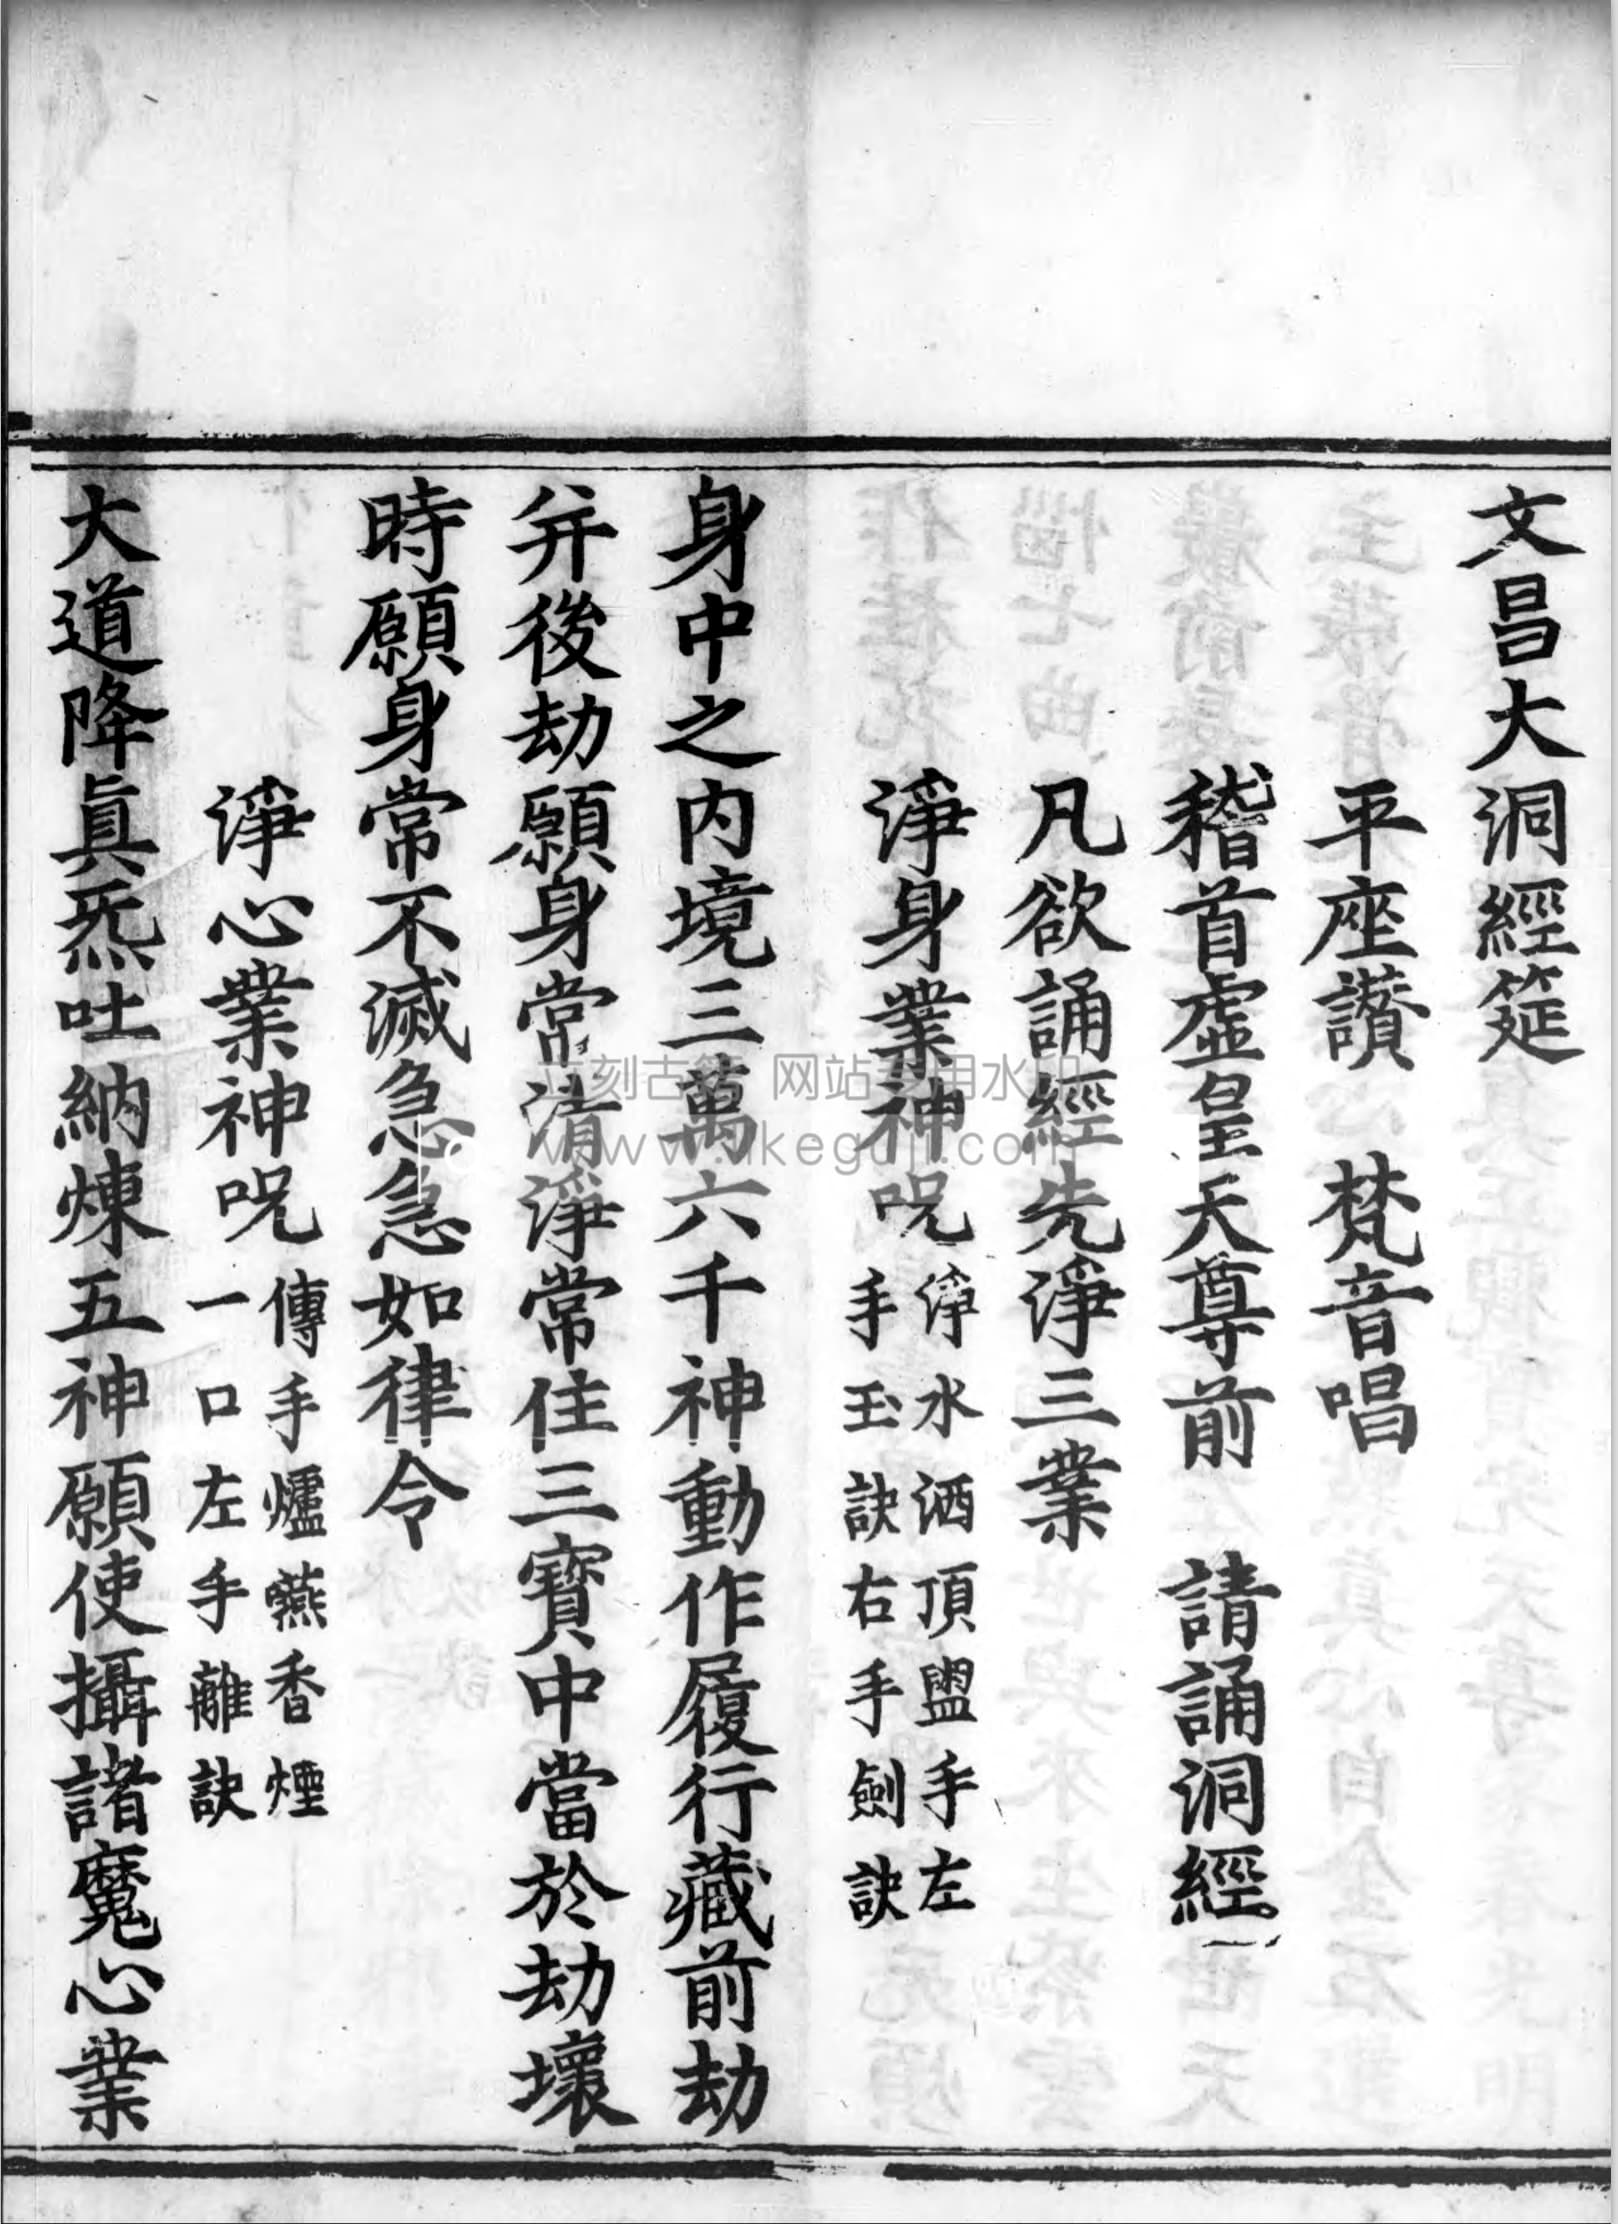 文昌大洞經筵
平座讚　梵音唱
稽首虛皇天尊前　請誦洞經
凡欲誦經先淨三業
淨身業神呪
淨水洒頂盥手左
手玉訣右手劍訣
身中之內境三萬六千神動作履行藏前劫
并後劫願身常清淨常住三寶中當於劫壞
時願身常不滅急急如律令
淨心業神呪
傳手爐嚥香煙
一口左手離訣
大道降眞炁吐納煉五神願使攝諸魔心業